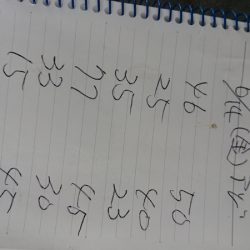 (金)
46 50
25 40
35 23
77 45
33 30
15 45